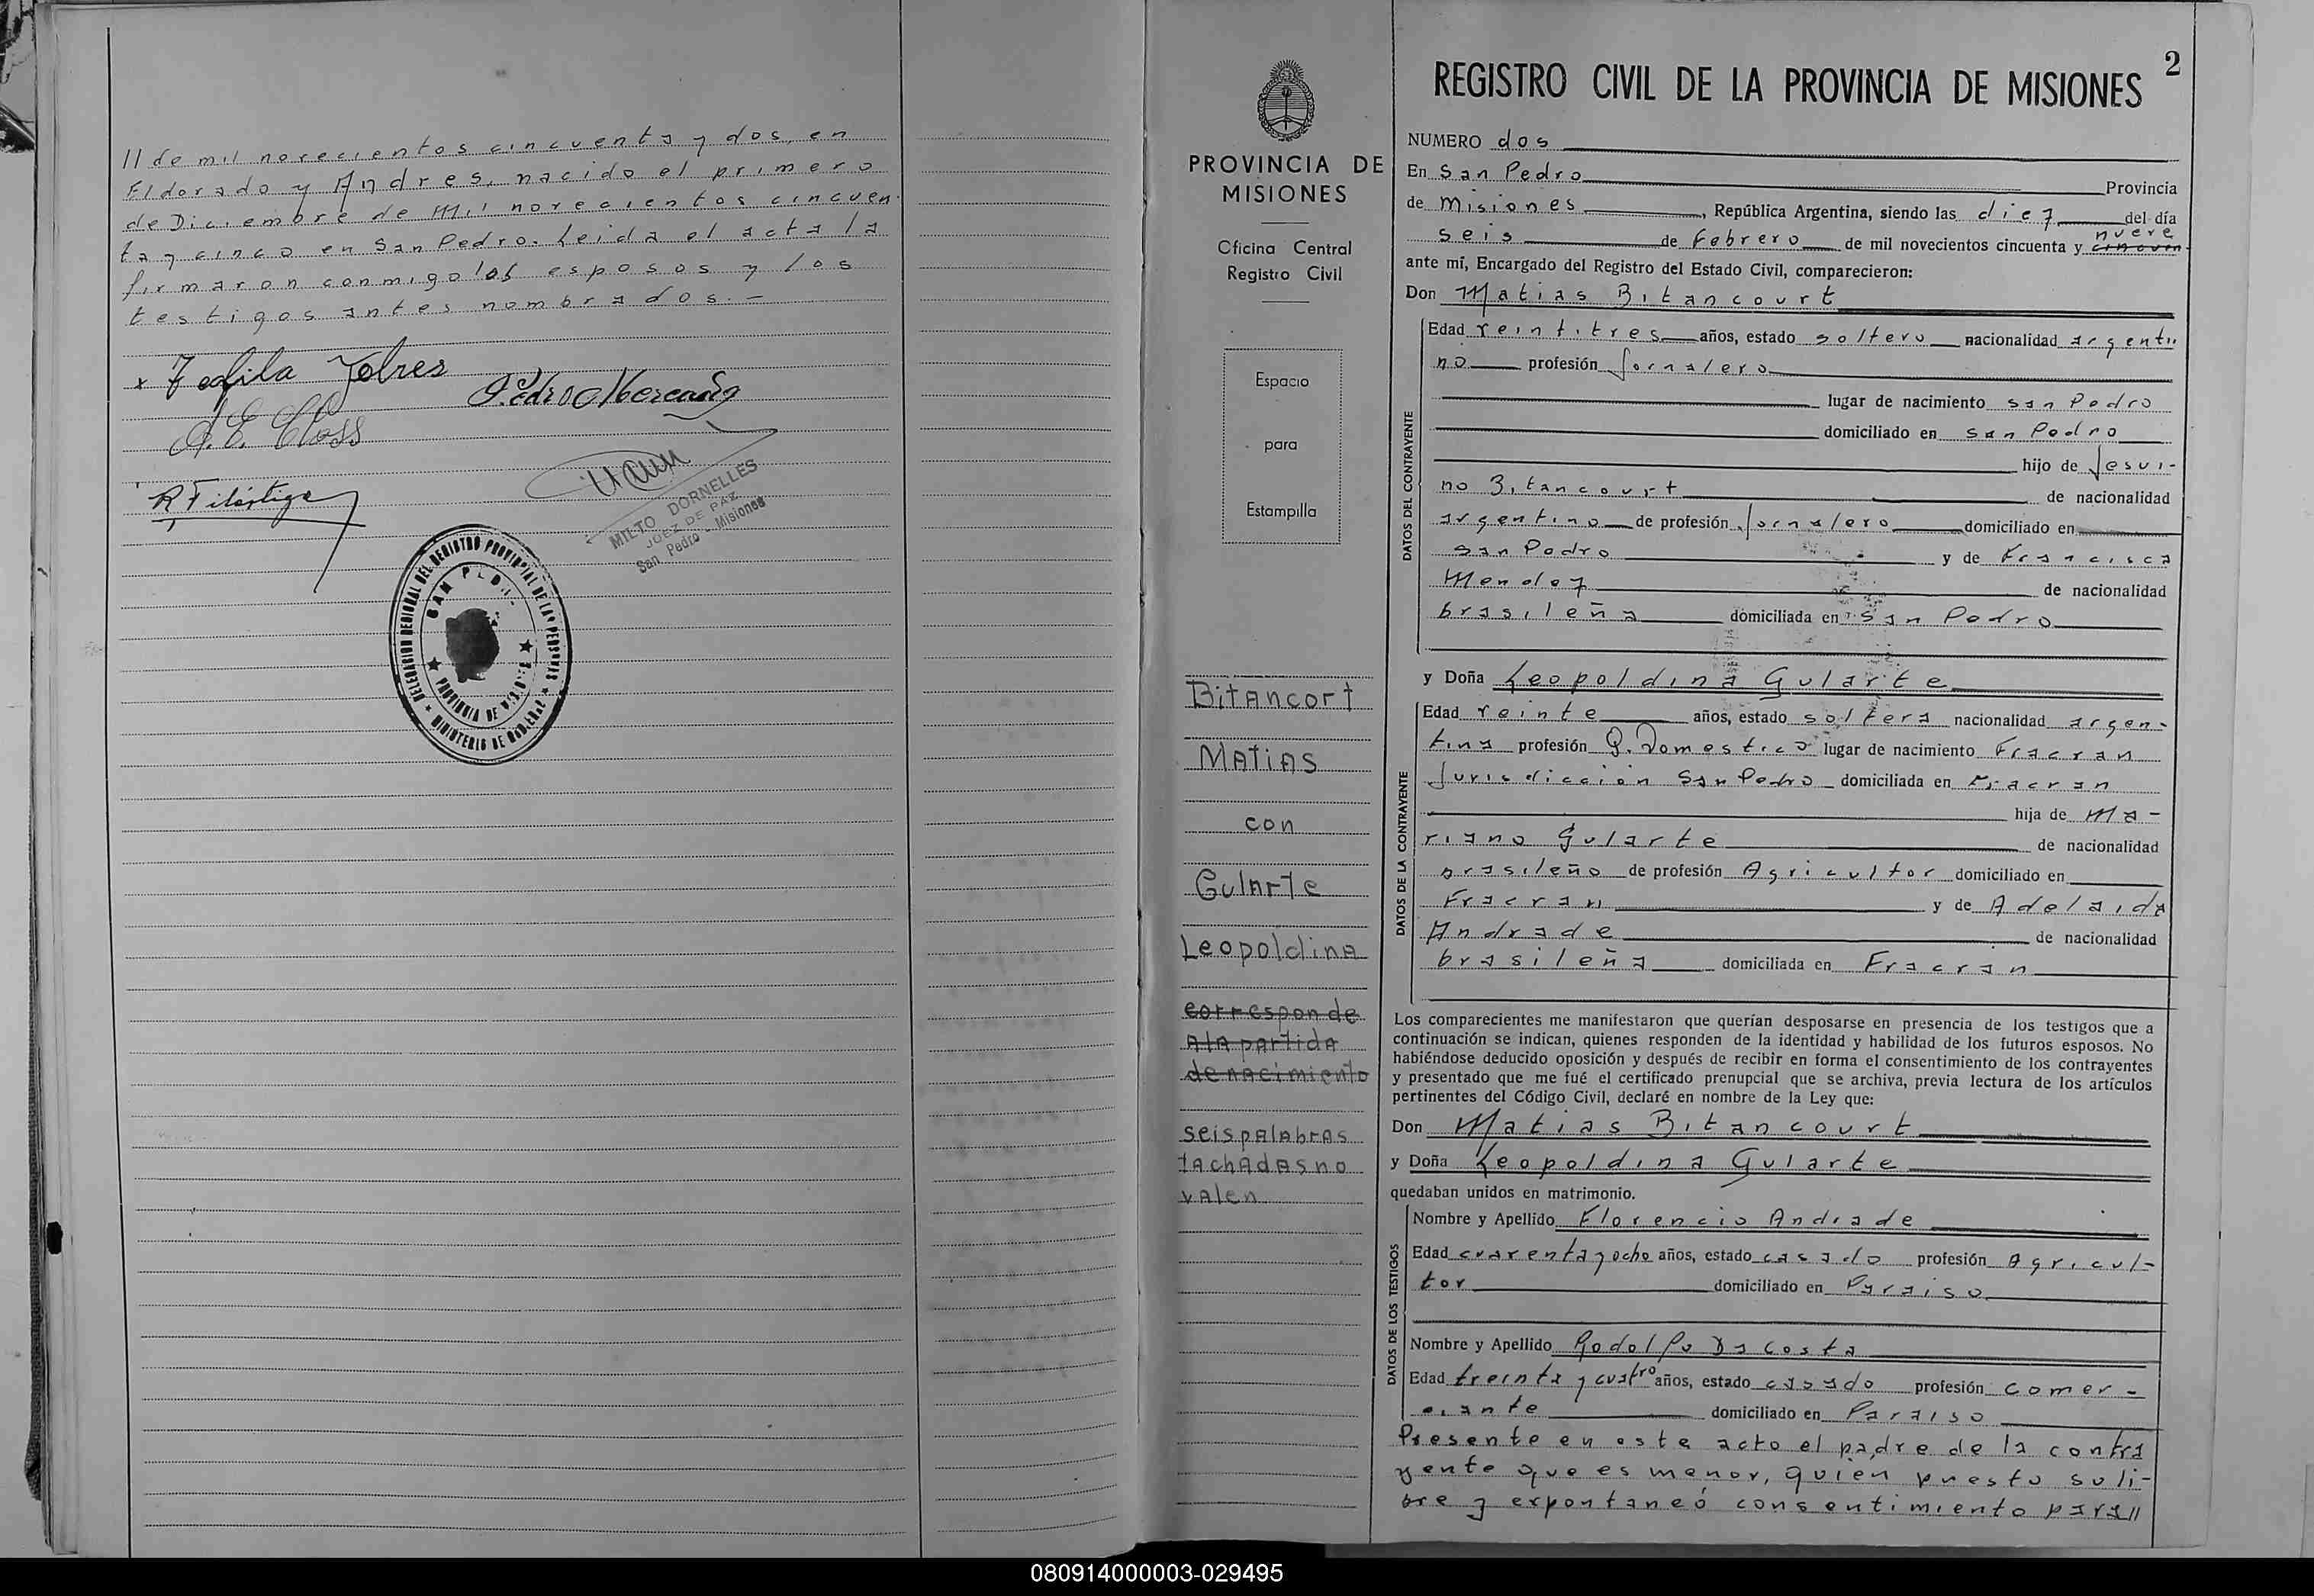 // de mil novecientos cincuenta y dos, en
Eldorado y Andres, nacido el primero
de Diciembre de Mil novecientos cincuen
ta y cinco en San Pedro. Leida el acta la
firmaron conmigo los esposos y los
testigos antes nombrados.—
x
Pedro
MILTO DORNELLES
JUEZ DE PAZ
San Pedro - Misiones
DELEGACION REGIONAL DEL REGISTRO PROVINCIAL DE LAS PERSONAS
SAN PEDRO
PROVINCIA DE MISIONES
MINISTERIO DE GOBIERNO
PROVINCIA DE
MISIONES
Oficina Central
Registro Civil
Espacio
para
Estampilla
Bitancort
Matias
con
Gularte
Leopoldina
corresponde
a la partida
de nacimiento
seis palabras
tachadas no
valen
2
REGISTRO CIVIL DE LA PROVINCIA DE MISIONES
NUMERO dos
En San Pedro Provincia
de Misiones, República Argentina, siendo las diez del día
nueve
seis de Febrero de mil novecientos cincuenta y cincuen
ante mí, Encargado del Registro del Estado Civil, comparecieron:
Don Matias Bitancourt
DATOS DEL CONTRAYENTE
Edad veintitres años, estado soltero nacionalidad argenti
no profesión Jornalero
lugar de nacimiento San Pedro
domiciliado en San Pedro
hijo de Jesui-
no Bitancourt de nacionalidad
argentino de profesión Jornalero domiciliado en
San Pedro y de Francisca
Mendez de nacionalidad
brasileña domiciliada en San Pedro
y Doña Leopoldina Gularte
DATOS DE LA CONTRAYENTE
Edad veinte años, estado soltera nacionalidad argen-
tina profesión Q. Domestico lugar de nacimiento Fracran
Jurisdicción San Pedro domiciliada en Fracran
hija de Ma-
riano Gularte de nacionalidad
brasileño de profesión Agricultor domiciliado en
Fracran y de Adelaida
Andrade de nacionalidad
brasileña domiciliada en Fracran
Los comparecientes me manifestaron que querían desposarse en presencia de los testigos que a
continuación se indican, quienes responden de la identidad y habilidad de los futuros esposos. No
habiéndose deducido oposición y después de recibir en forma el consentimiento de los contrayentes
y presentado que me fué el certificado prenupcial que se archiva, previa lectura de los artículos
pertinentes del Código Civil, declaré en nombre de la Ley que:
Don Matias Bitancourt
y Doña Leopoldina Gularte
quedaban unidos en matrimonio.
DATOS DE LOS TESTIGOS
Nombre y Apellido Florencio Andrade
Edad cuarenta y ocho años, estado casado profesión Agricul-
tor domiciliado en Paraiso
Nombre y Apellido Rodolfo Da Costa
Edad treinta y cuatro años, estado casado profesión comer-
ciante domiciliado en Paraiso
Presente en este acto el padre de la contra
yente que es menor, quien presto su li-
bre y expontaneo consentimiento para//
080914000003-029495